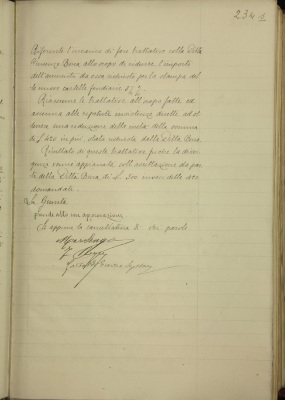 234 1
Riferente l'incarico di fare trattative colla Ditta
Vincenzo Bona allo scopo di ridurre l'importo
dell'aumento da essa richiesto per la stampa del-
le nuove cartelle fondiarie
Riassume le trattative all'uopo fatte ed
accenna alle ripetute insistenze dirette ad ot-
tenere una riduzione della metà della somma
di £ 420 in più, stata richiesta dalla Ditta Bona.
Risultato di queste trattative fu che la diver-
genza venne appianata coll'accettazione da par-
te della Ditta Bona di £ 300 invece delle 420
domandate.
La Giunta
prende atto con approvazione
Si approva la cancellatura di tre parole